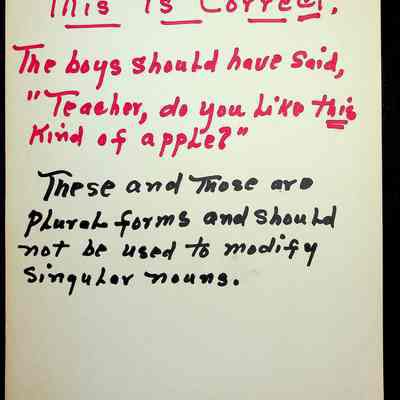 This Is Correct.
The boys should have said,
"Teacher, do you like this
kind of apple?"
These and Those are
plural forms and should
not be used to modify
singular nouns.